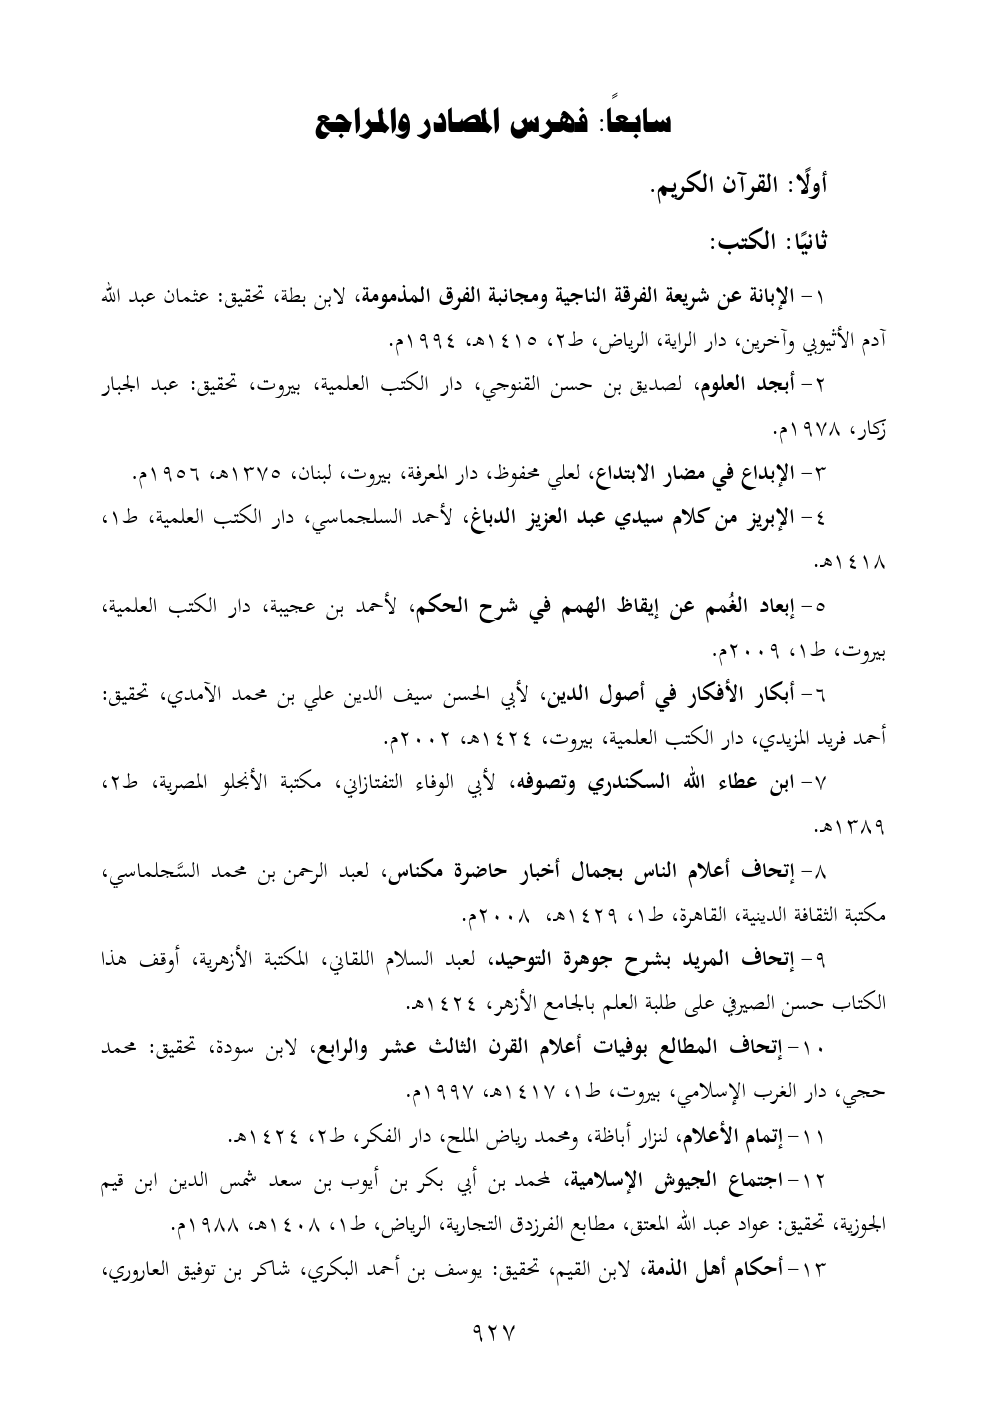 سابعاً: فهرس المصادر والمراجع
أولًا: القرآن الكريم.
ثانيًا: الكتب:
١- الإبانة عن شريعة الفرقة الناجية ومجانبة الفرق المذمومة، لابن بطة، تحقيق: عثمان عبد الله
آدم الأثْيوبي وآخرين، دار الراية، الرياض، ط٢، ١٤١٥هـ، ١٩٩٤م.
٢- أبجد العلوم، لصديق بن حسن القنوجي، دار الكتب العلمية، بيروت، تحقيق: عبد الجبار
زكار، ١٩٧٨م.
٣- الإبداع في مضار الابتداع، لعلي محفوظ، دار المعرفة، بيروت، لبنان، ١٣٧٥هـ، ١٩٥٦م.
٤- الإبريز من كلام سيدي عبد العزيز الدباغ، لأحمد السلجماسي، دار الكتب العلمية، ط١،
١٤١٨هـ.
٥- إبعاد الغُمم عن إيقاظ الهمم في شرح الحكم، لأحمد بن عجيبة، دار الكتب العلمية،
بيروت، ط١، ٢٠٠٩م.
٦- أبكار الأفكار في أصول الدين، لأبي الحسن سيف الدين علي بن محمد الآمدي، تحقيق:
أحمد فريد المزيدي، دار الكتب العلمية، بيروت، ١٤٢٤هـ، ٢٠٠٢م.
٧- ابن عطاء الله السكندري وتصوفه، لأبي الوفاء التفتازاني، مكتبة الأنجلو المصرية، ط٢،
١٣٨٩هـ.
٨- إتحاف أعلام الناس بجمال أخبار حاضرة مكناس، لعبد الرحمن بن محمد السَّجلماسي،
مكتبة الثقافة الدينية، القاهرة، ط١، ١٤٢٩هـ، ٢٠٠٨م.
٩- إتحاف المريد بشرح جوهرة التوحيد، لعبد السلام اللقاني، المكتبة الأزهرية، أوقف هذا
الكتاب حسن الصيرفي على طلبة العلم بالجامع الأزهر، ١٤٢٤هـ.
١٠- إتحاف المطالع بوفيات أعلام القرن الثالث عشر والرابع، لابن سودة، تحقيق: محمد
حجي، دار الغرب الإسلامي، بيروت، ط١، ١٤١٧هـ، ١٩٩٧م.
١١- إتمام الأعلام، لنزار أباظة، ومحمد رياض الملح، دار الفكر، ط٢، ١٤٢٤هـ.
١٢- اجتماع الجيوش الإسلامية، لمحمد بن أبي بكر بن أيوب بن سعد شمس الدين ابن قيم
الجوزية، تحقيق: عواد عبد الله المعتق، مطابع الفرزدق التجارية، الرياض، ط١، ١٤٠٨هـ، ١٩٨٨م.
١٣- أحكام أهل الذمة، لابن القيم، تحقيق: يوسف بن أحمد البكري، شاكر بن توفيق العاروري،
٩٢٧